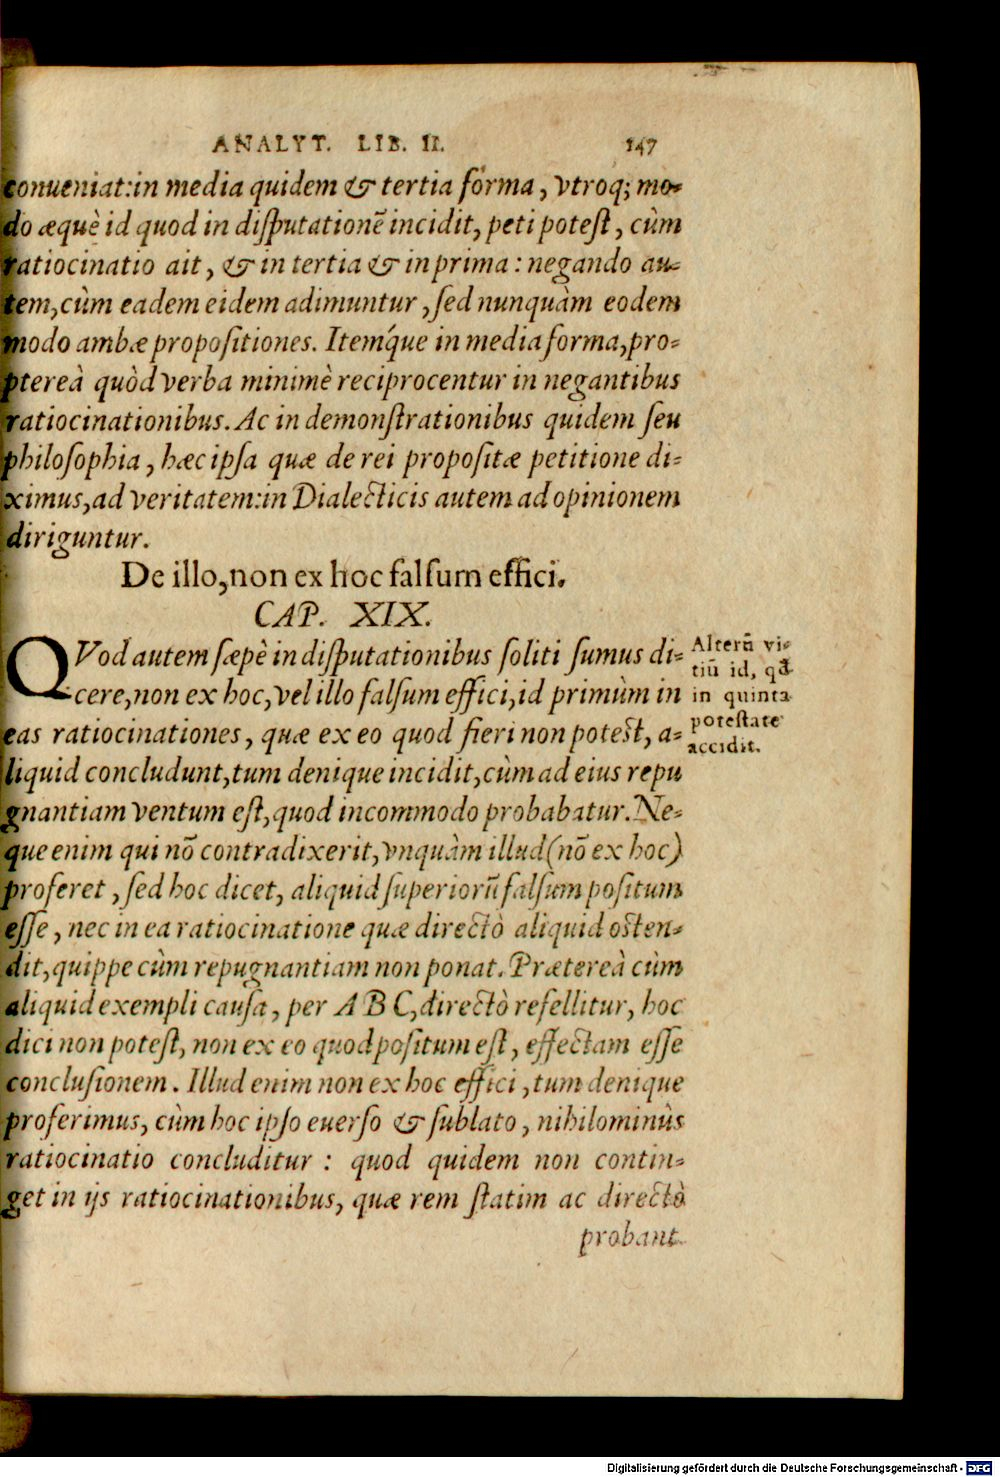 ANALYT. LIB. II. 147
conueniat:in media quidem & tertia forma, vtroq; mo-
do æquè id quod in disputationē incidit, peti potest, cùm
ratiocinatio ait, & in tertia & in prima: negando au-
tem, cùm eadem eidem adimuntur, sed nunquàm eodem
modo ambæ propositiones. Itemq́ue in media forma, pro-
ptereà quòd verba minimè reciprocentur in negantibus
ratiocinationibus. Ac in demonstrationibus quidem seu
philosophia, hæc ipsa quæ de rei propositæ petitione di-
ximus, ad veritatem:in Dialecticis autem ad opinionem
diriguntur.
De illo, non ex hoc falsum effici.
CAP. XIX.
QVod autem sæpè in disputationibus soliti sumus di-
cere, non ex hoc, vel illo falsum effici, id primùm in
eas ratiocinationes, quæ ex eo quod fieri non potest, a-
liquid concludunt, tum denique incidit, cùm ad eius repu
gnantiam ventum est, quod incommodo probabatur. Ne-
que enim qui nō contradixerit, vnquàm illud (nō ex hoc)
proferet, sed hoc dicet, aliquid superiorū falsum positum
esse, nec in ea ratiocinatione quæ directò aliquid osten-
dit, quippe cùm repugnantiam non ponat. Prætereà cùm
aliquid exempli causa, per A B C, directò refellitur, hoc
dici non potest, non ex eo quod positum est, effectam esse
conclusionem. Illud enim non ex hoc effici, tum denique
proferimus, cùm hoc ipso euerso & sublato, nihilominùs
ratiocinatio concluditur: quod quidem non contin-
get in ijs ratiocinationibus, quæ rem statim ac directò
probant.
Alterū vi-
tiū id, qđ
in quinta
potestate
accidit.
Digitalisierung gefördert durch die Deutsche Forschungsgemeinschaft - DFG